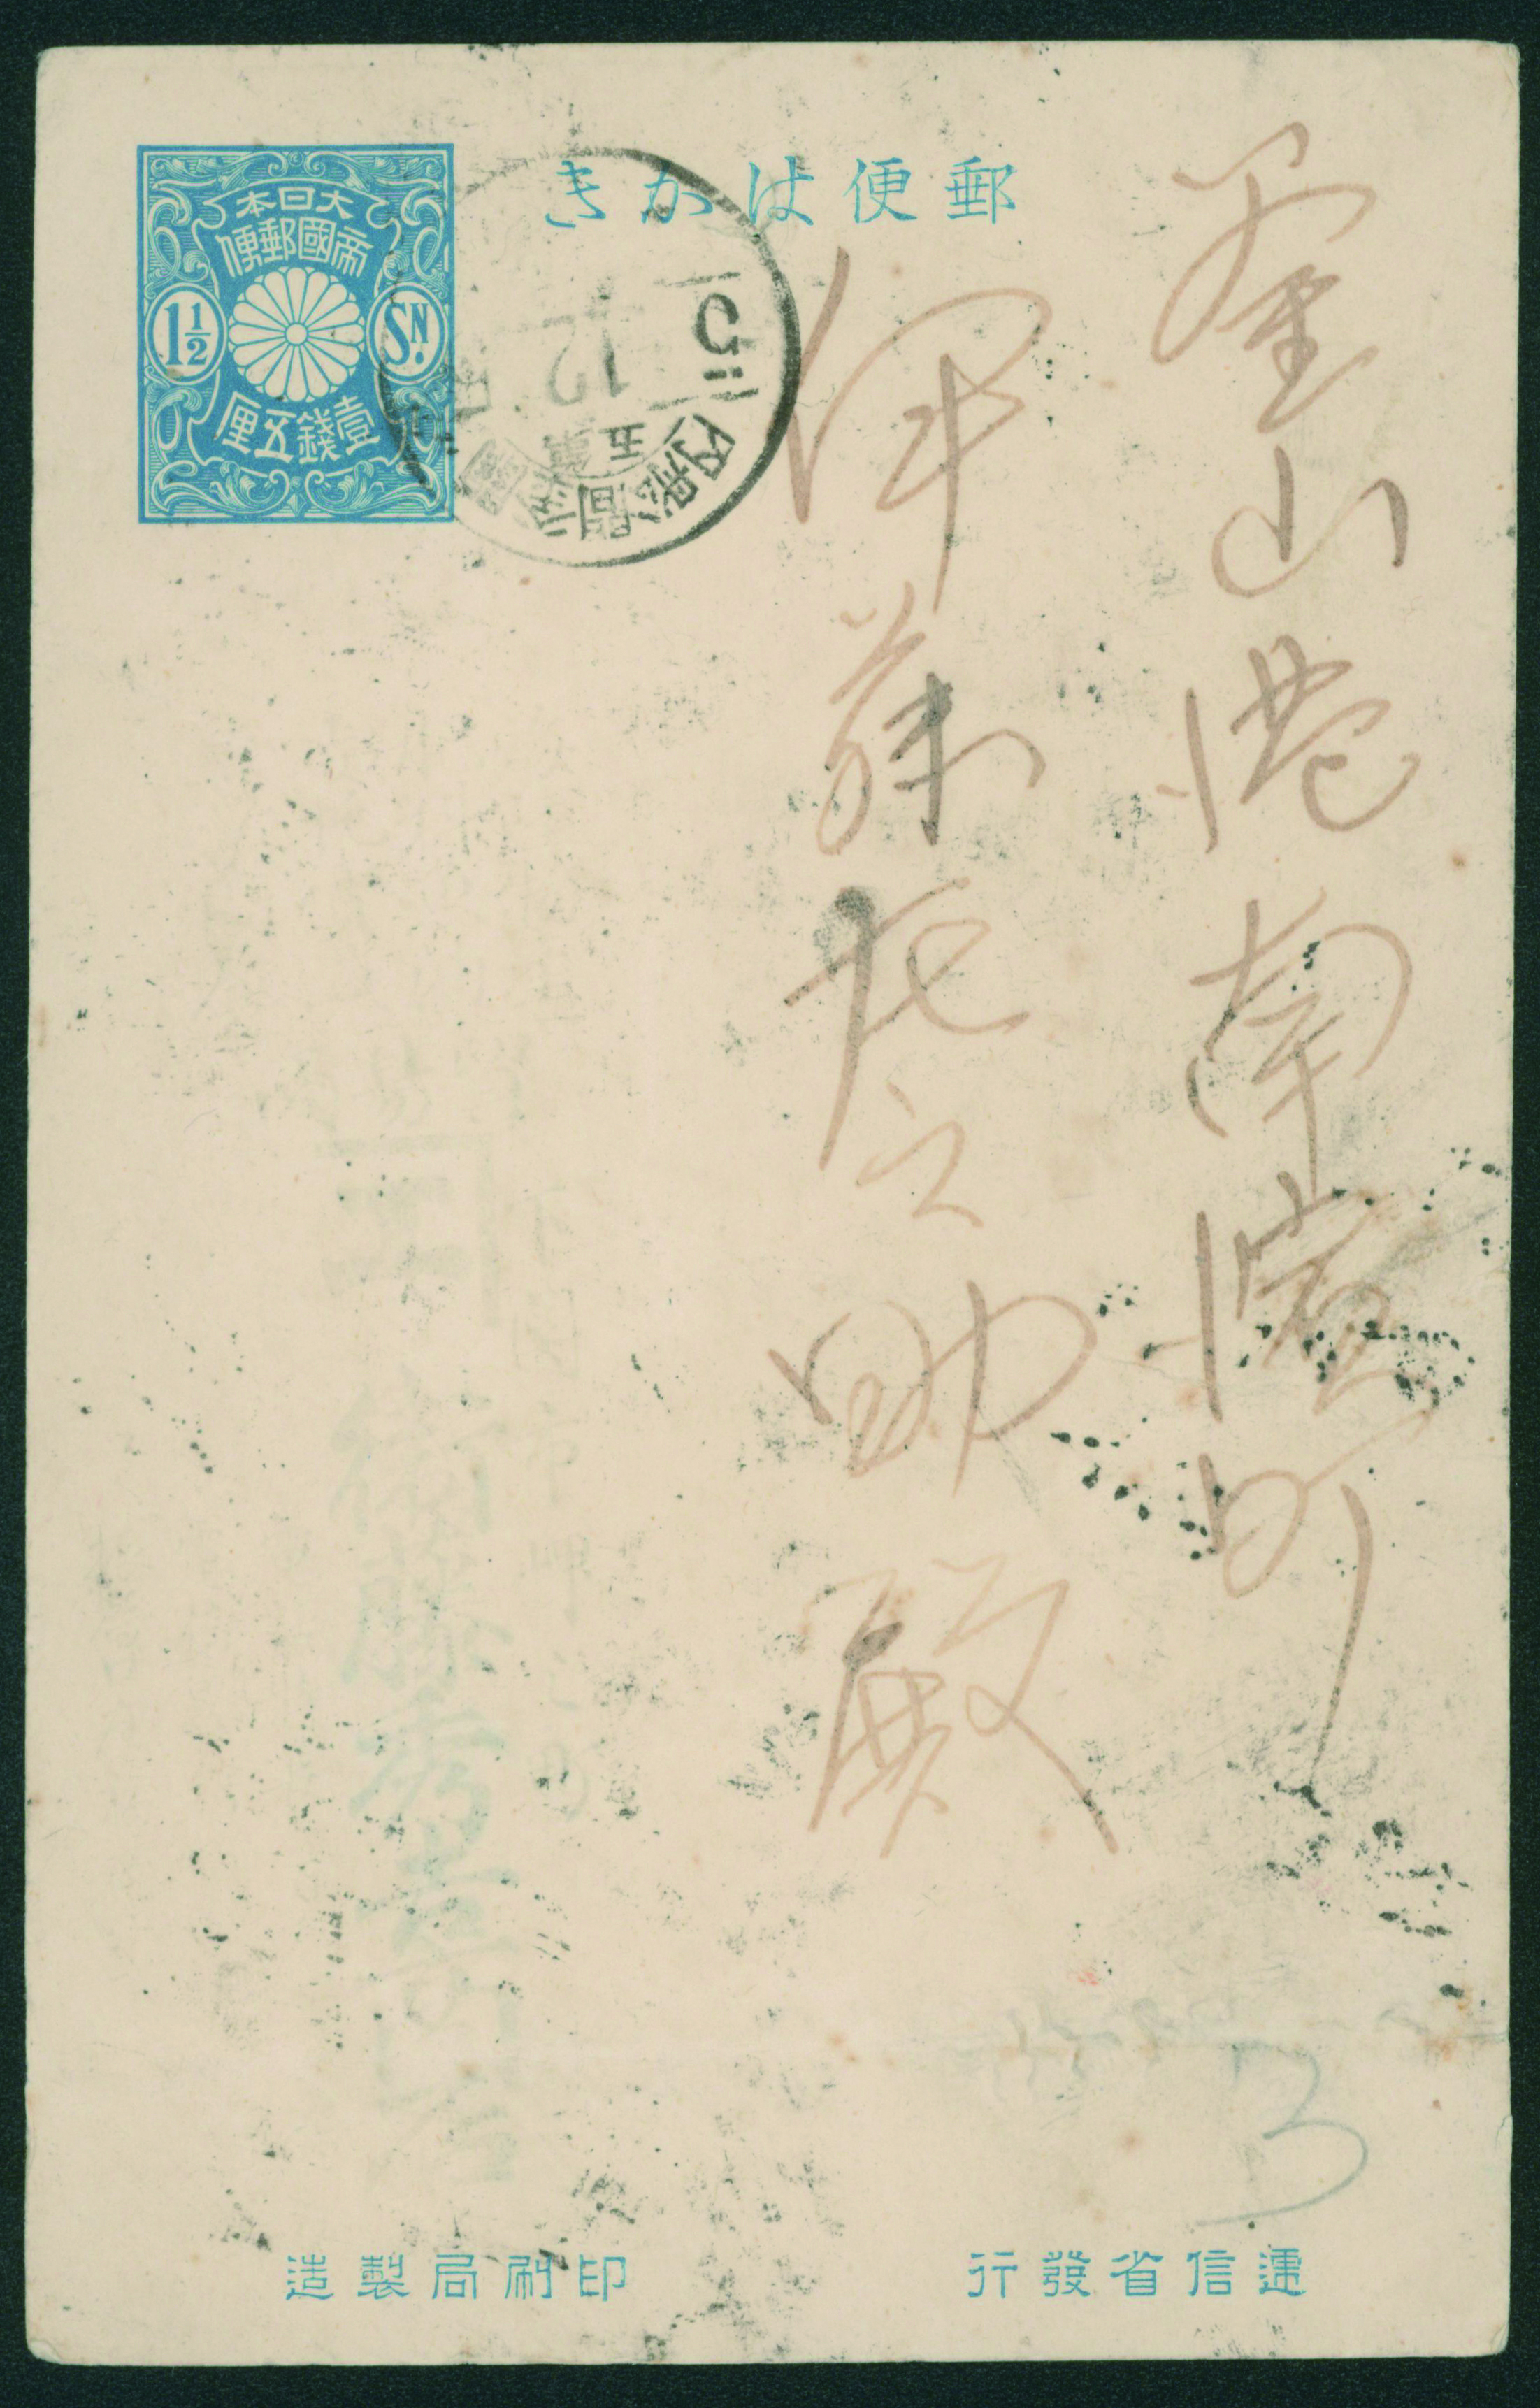 郵便はかき
大日本
帝國郵便
1½ SN.
壹錢五厘
釜山港南濱町
伊藤之助殿
3
遞信省發行
印刷局製造